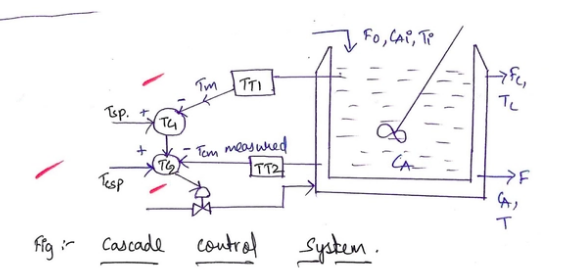 F0, CAi, Ti
Tm
TT1
Fc,
Tc
Tsp. + -
TC1
+ - Tcm measured
TC2
TT2
CA
Tcsp
F
CA,
T
Fig :- Cascade control System.